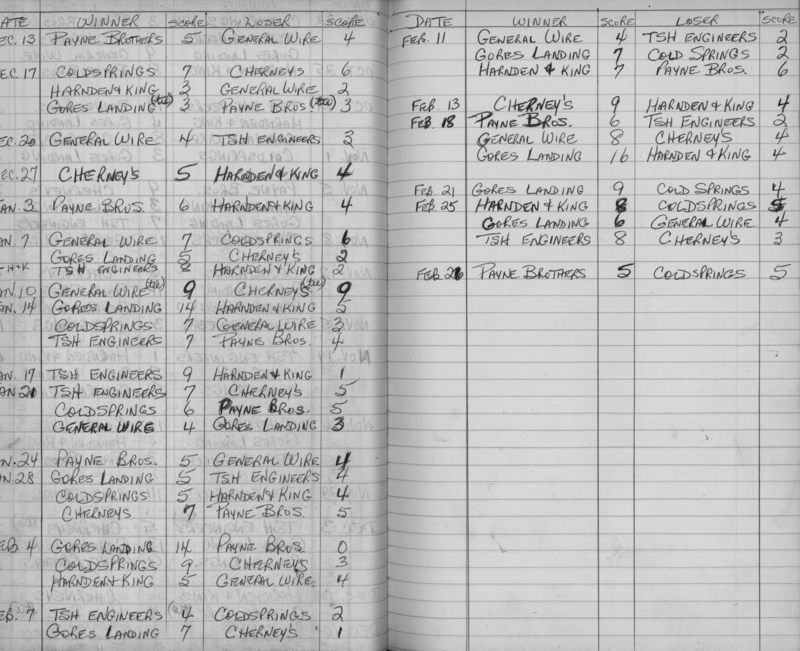 ATE WINNER SCORE LOSER SCORE
EC. 13 PAYNE BROTHERS 5 GENERAL WIRE 4
EC. 17 COLDSPRINGS 7 CHERNEY'S 6
HARNDEN & KING 3 GENERAL WIRE 2
GORES LANDING (tie) 3 PAYNE BROS. (tie) 3
EC. 20 GENERAL WIRE 4 TSH ENGINEERS 3
EC. 27 CHERNEY'S 5 HARNDEN & KING 4
AN. 3 PAYNE BROS. 6 HARNDEN & KING 4
AN. 7 GENERAL WIRE 7 COLDSPRINGS 6
GORES LANDING 5 CHERNEY'S 2
TSH ENGINEERS 8 HARNDEN & KING 2
AN. 10 GENERAL WIRE (tie) 9 CHERNEY'S (tie) 9
AN. 14 GORES LANDING 14 HARNDEN & KING 5
COLDSPRINGS 7 GENERAL WIRE 3
TSH ENGINEERS 7 PAYNE BROS. 4
AN. 17 TSH ENGINEERS 9 HARNDEN & KING 1
AN 21 TSH ENGINEERS 7 CHERNEY'S 5
COLDSPRINGS 6 PAYNE BROS. 5
GENERAL WIRE 4 GORES LANDING 3
AN. 24 PAYNE BROS. 5 GENERAL WIRE 4
AN 28 GORES LANDING 5 TSH ENGINEERS 4
COLDSPRINGS 5 HARNDEN & KING 4
CHERNEYS 7 PAYNE BROS. 5
EB 4 GORES LANDING 14 PAYNE BROS. 0
COLDSPRINGS 9 CHERNEY'S 3
HARNDEN & KING 5 GENERAL WIRE 4
EB. 7 TSH ENGINEERS 4 COLDSPRINGS 2
GORES LANDING 7 CHERNEY'S 1
DATE WINNER SCORE LOSER SCORE
FEB. 11 GENERAL WIRE 4 TSH ENGINEERS 2
GORES LANDING 7 COLD SPRINGS 2
HARNDEN & KING 7 PAYNE BROS. 6
FEB. 13 CHERNEY'S 9 HARNDEN & KING 4
FEB. 18 PAYNE BROS. 6 TSH ENGINEERS 2
GENERAL WIRE 8 CHERNEY'S 4
GORES LANDING 16 HARNDEN & KING 4
FEB. 21 GORES LANDING 9 COLD SPRINGS 4
FEB. 25 HARNDEN & KING 8 COLDSPRINGS 5
GORES LANDING 6 GENERAL WIRE 4
TSH ENGINEERS 8 CHERNEY'S 3
FEB. PAYNE BROTHERS 5 COLDSPRINGS 5